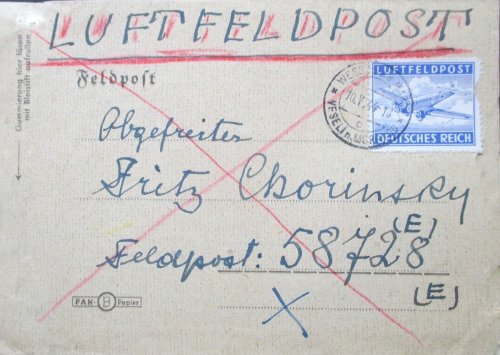 LUFTFELDPOST
Gummierung hier lösen
mit Bleistift aufrollen
Feldpost
LUFTFELDPOST
DEUTSCHES REICH
Obgefreiter
Fritz Chorinsky
(E)
Feldpost: 58728
(E)
PAN-B Papier
X